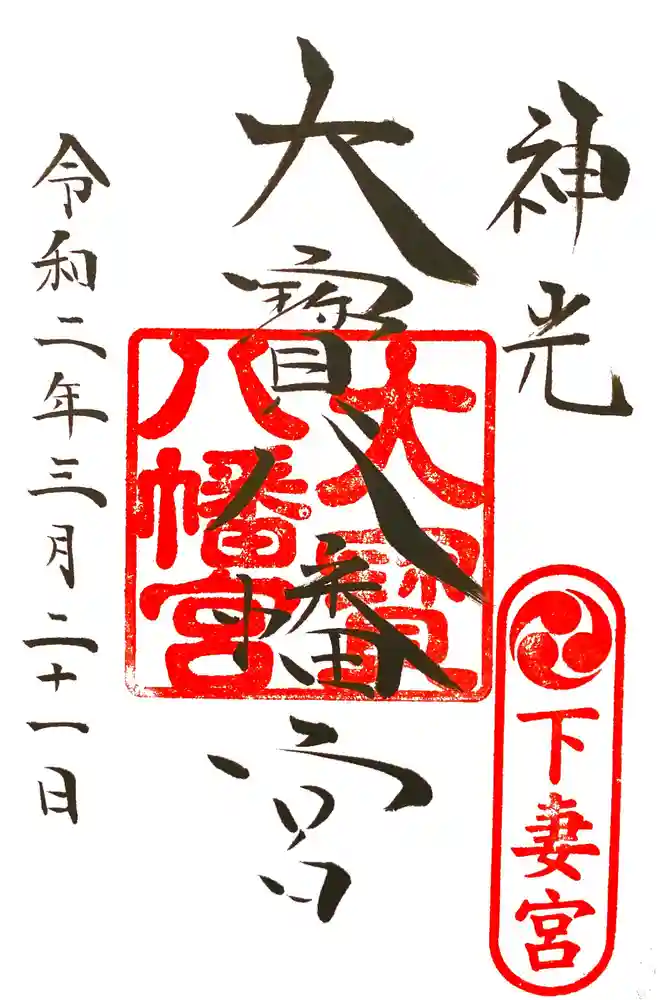 神光
下妻宮
大寶八幡宮
大寶
八幡宮
令和二年三月二十一日